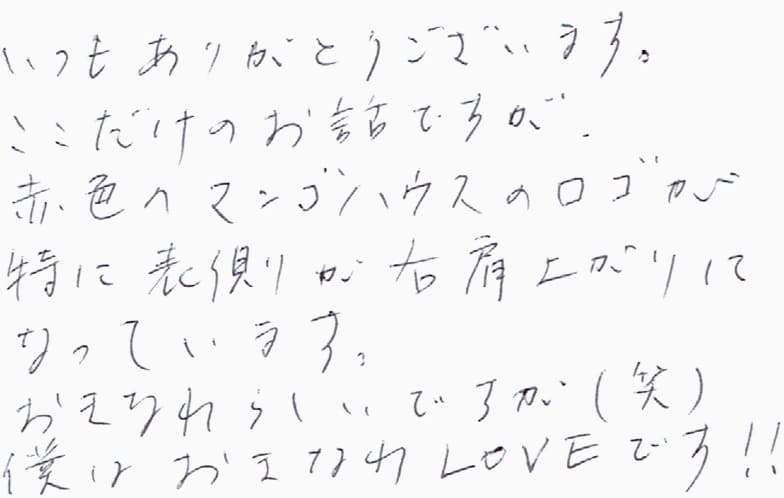 いつもありがとうございます。
ここだけのお話ですが、
赤色のマンゴハウスのロゴが
特に表側が右肩上がりに
なっています。
おきなわらしいですが(笑)
僕はおきなわLOVEです!!